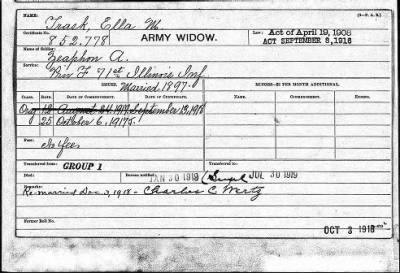 (3—P. A. R.)
NAME: Trask, Ella M.
Certificate No. 852.778 ARMY WIDOW. Law: Act of April 19, 1908
ACT SEPTEMBER 8, 1916
Name of Soldier: A.
Service: F 71st Illinois Inf.
ISSUED. Married 1897. MINORS—$2 PER MONTH ADDITIONAL.
CLASS. RATE. DATE OF COMMENCEMENT. DATE OF CERTIFICATE.
Orig 12 August 24. 1917. September 13, 1918
25 October 6, 1917.
No fees
Transferred from: GROUP 1 Transferred to:
Died: Bureau notified: JAN 30 1919 JUL 30 1919
Remarks:
Re-married Dec. 3, 1918 - Charles C. Wertz
Former Roll No. OCT 3 1918